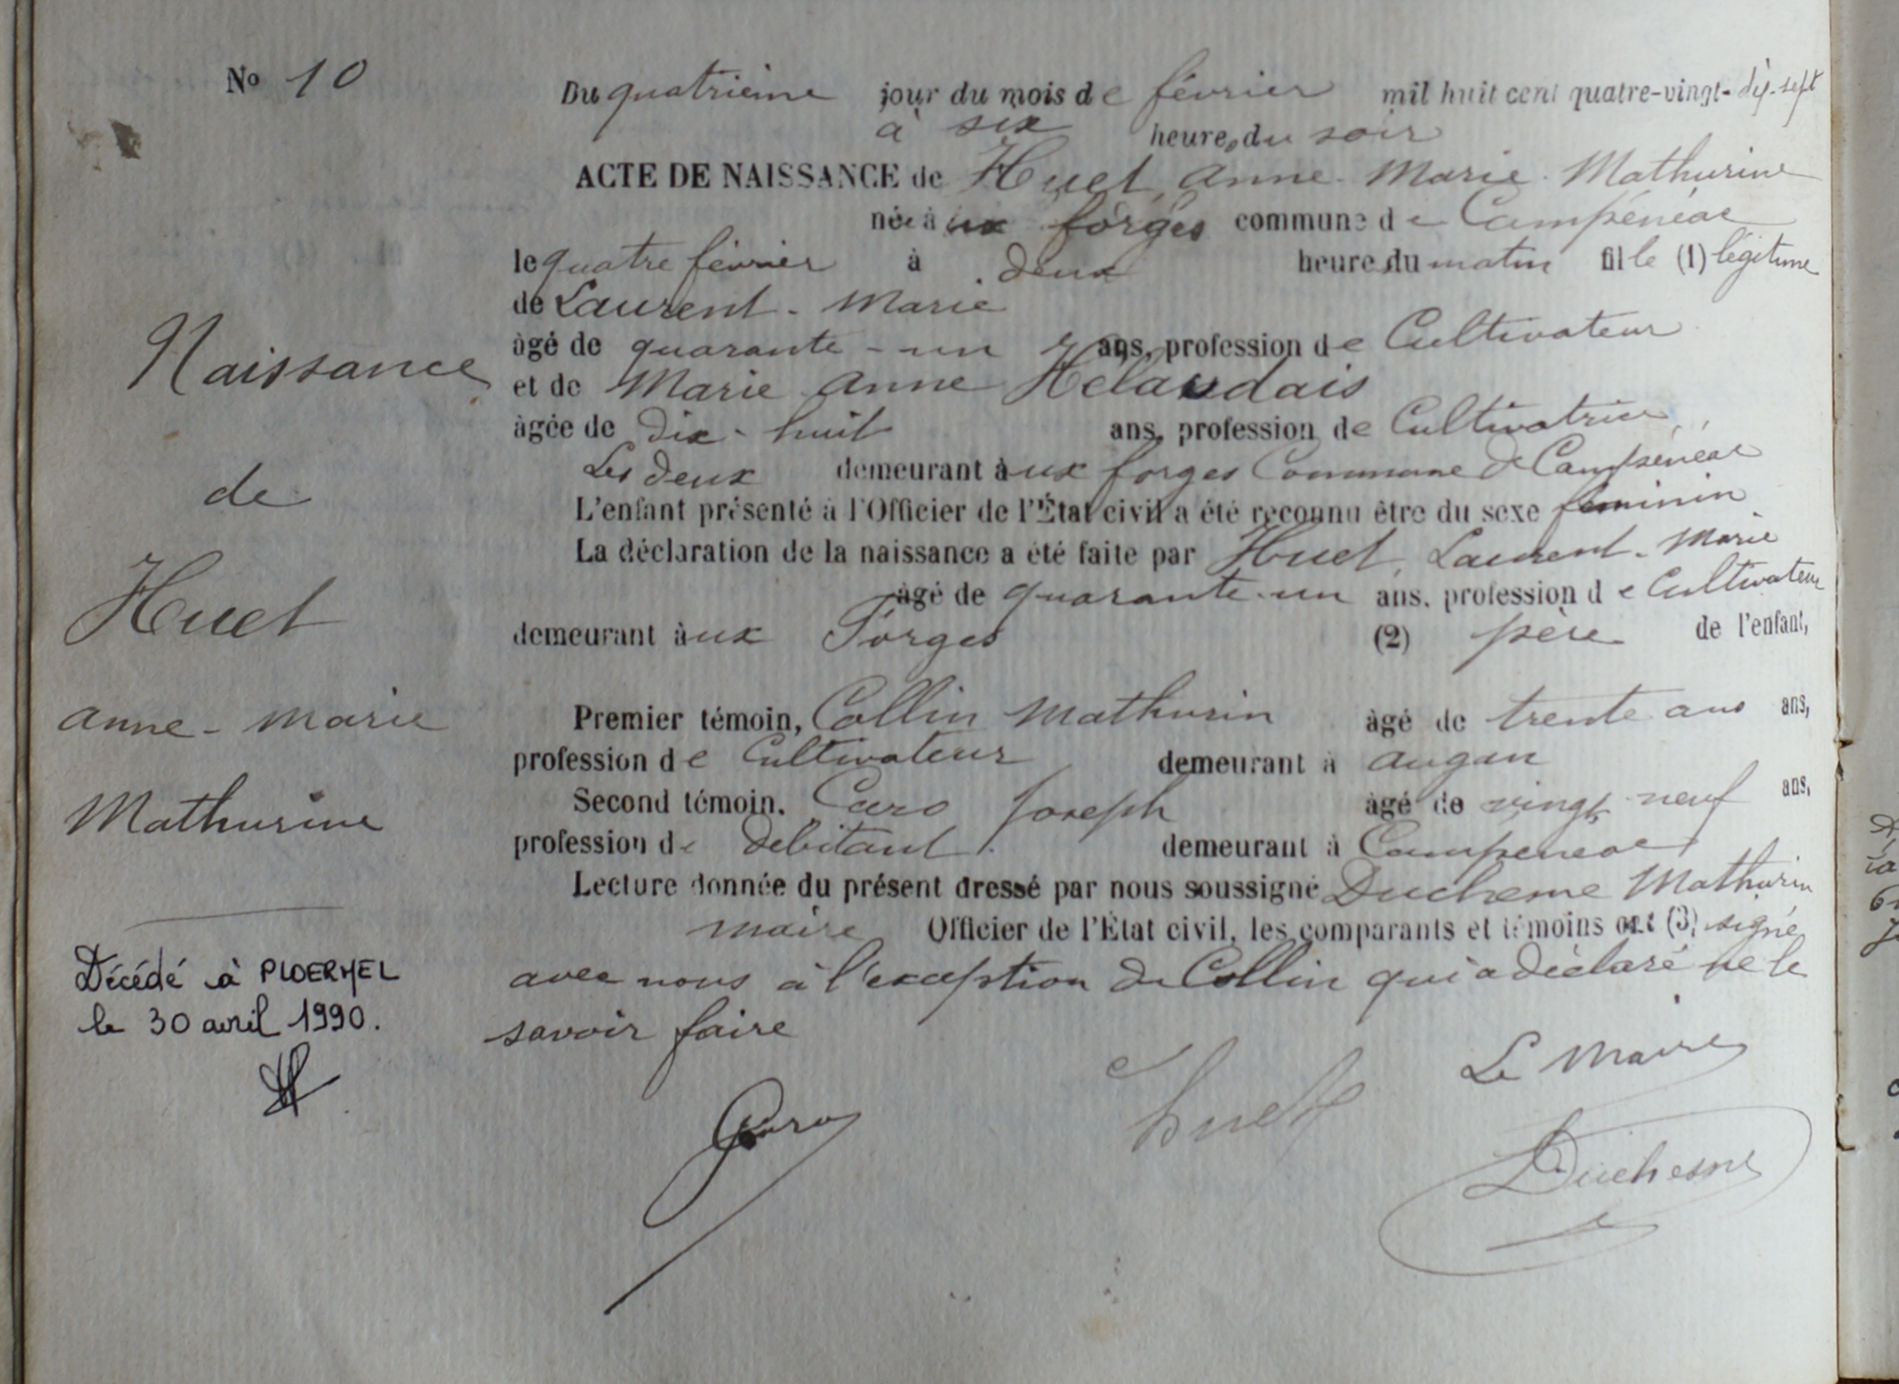 No 10
Naissance
de
Huet
anne - marie
Mathurine
Décédé à PLOERMEL
le 30 avril 1990.
Du quatrième jour du mois de février mil huit cent quatre-vingt-dix-sept
à six heures du soir
ACTE DE NAISSANCE de Huet, anne - Marie - Mathurine
née à ux forges commune de Campénéac
le quatre février à deux heures du matin fille (1) légitime
de Laurent - Marie
âgé de quarante - un ans, profession de Cultivateur
et de Marie anne
âgée de dix - huit ans, profession de Cultivatrice
Les deux demeurant à ux forges Commune de Campénéac
L'enfant présenté à l'Officier de l'État civil a été reconnu être du sexe feminin
La déclaration de la naissance a été faite par Huet, Laurent - Marie
âgé de quarante - un ans, profession de Cultivateur
demeurant à ux Forges (2) père de l'enfant,
Premier témoin, Collin Mathurin âgé de trente ans ans,
profession de Cultivateur demeurant à augan
Second témoin, Caro Joseph âgé de vingt neuf ans,
profession de debitant demeurant à Campeneac
Lecture donnée du présent dressé par nous soussigné Duchesne Mathurin
maire Officier de l'État civil, les comparants et témoins ont (3) signé
avec nous à l'exception de Collin qui a déclaré ne le
savoir faire
Le Maire
Caro
huet
Duchesne